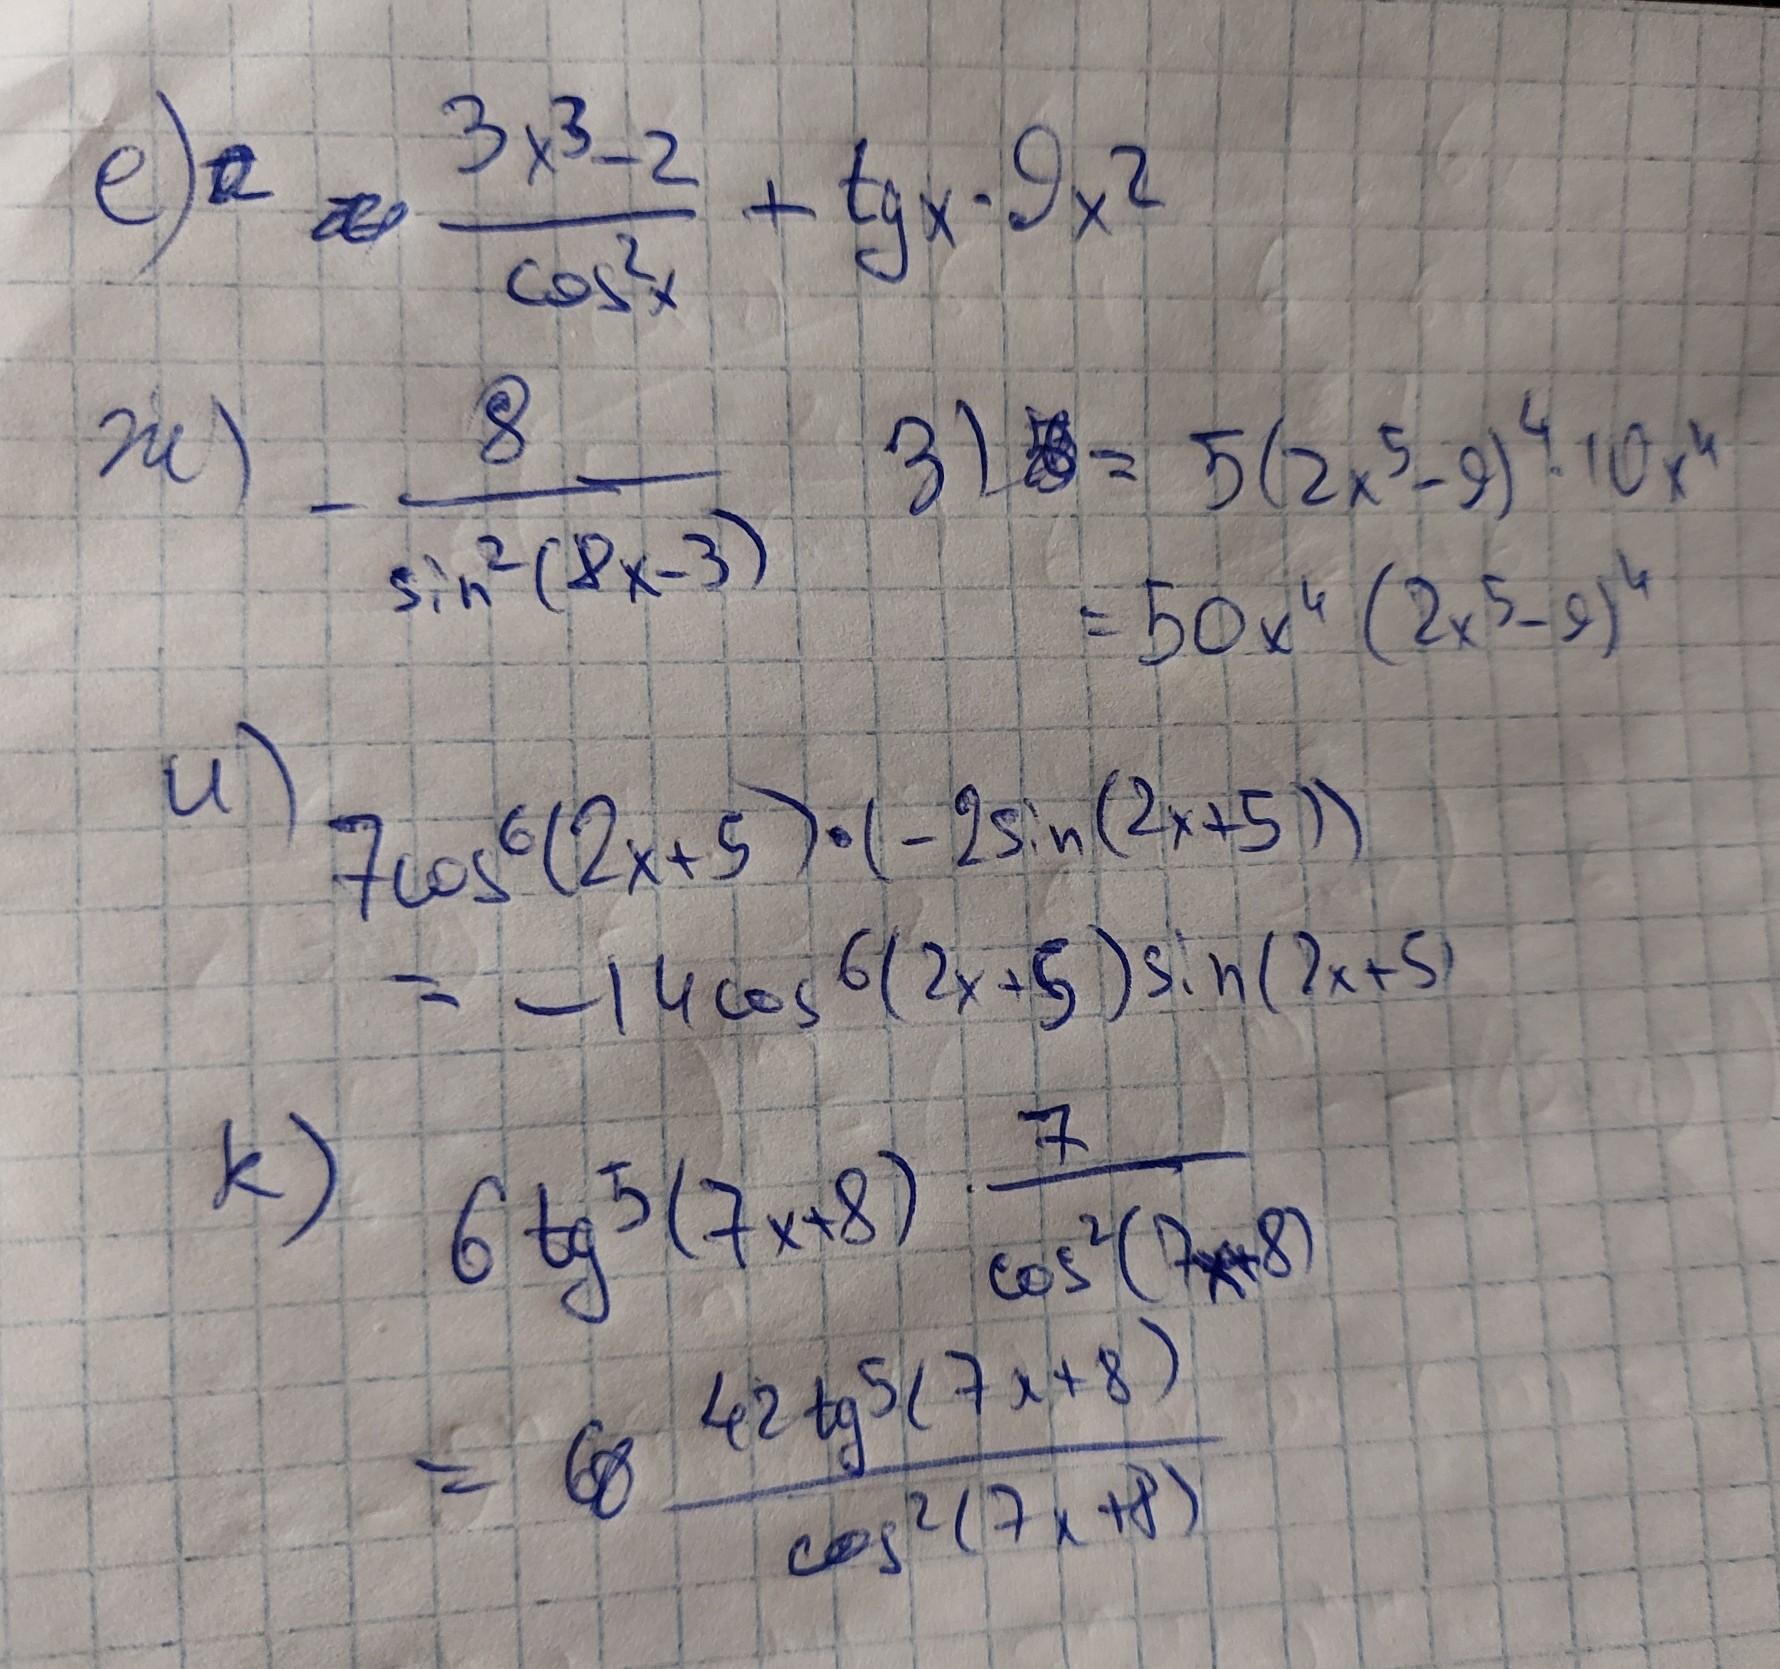 е) = (3x³-2)/(cos²x) + tgx · 9x²
ж) - 8/(sin²(8x-3))
з) = 5(2x⁵-9)⁴ · 10x⁴
= 50x⁴ (2x⁵-9)⁴
и) 7cos⁶(2x+5) · (-2sin(2x+5))
= -14cos⁶(2x+5)sin(2x+5)
к) 6 tg⁵(7x+8) · 7/(cos²(7x+8))
= 42 tg⁵(7x+8)/(cos²(7x+8))